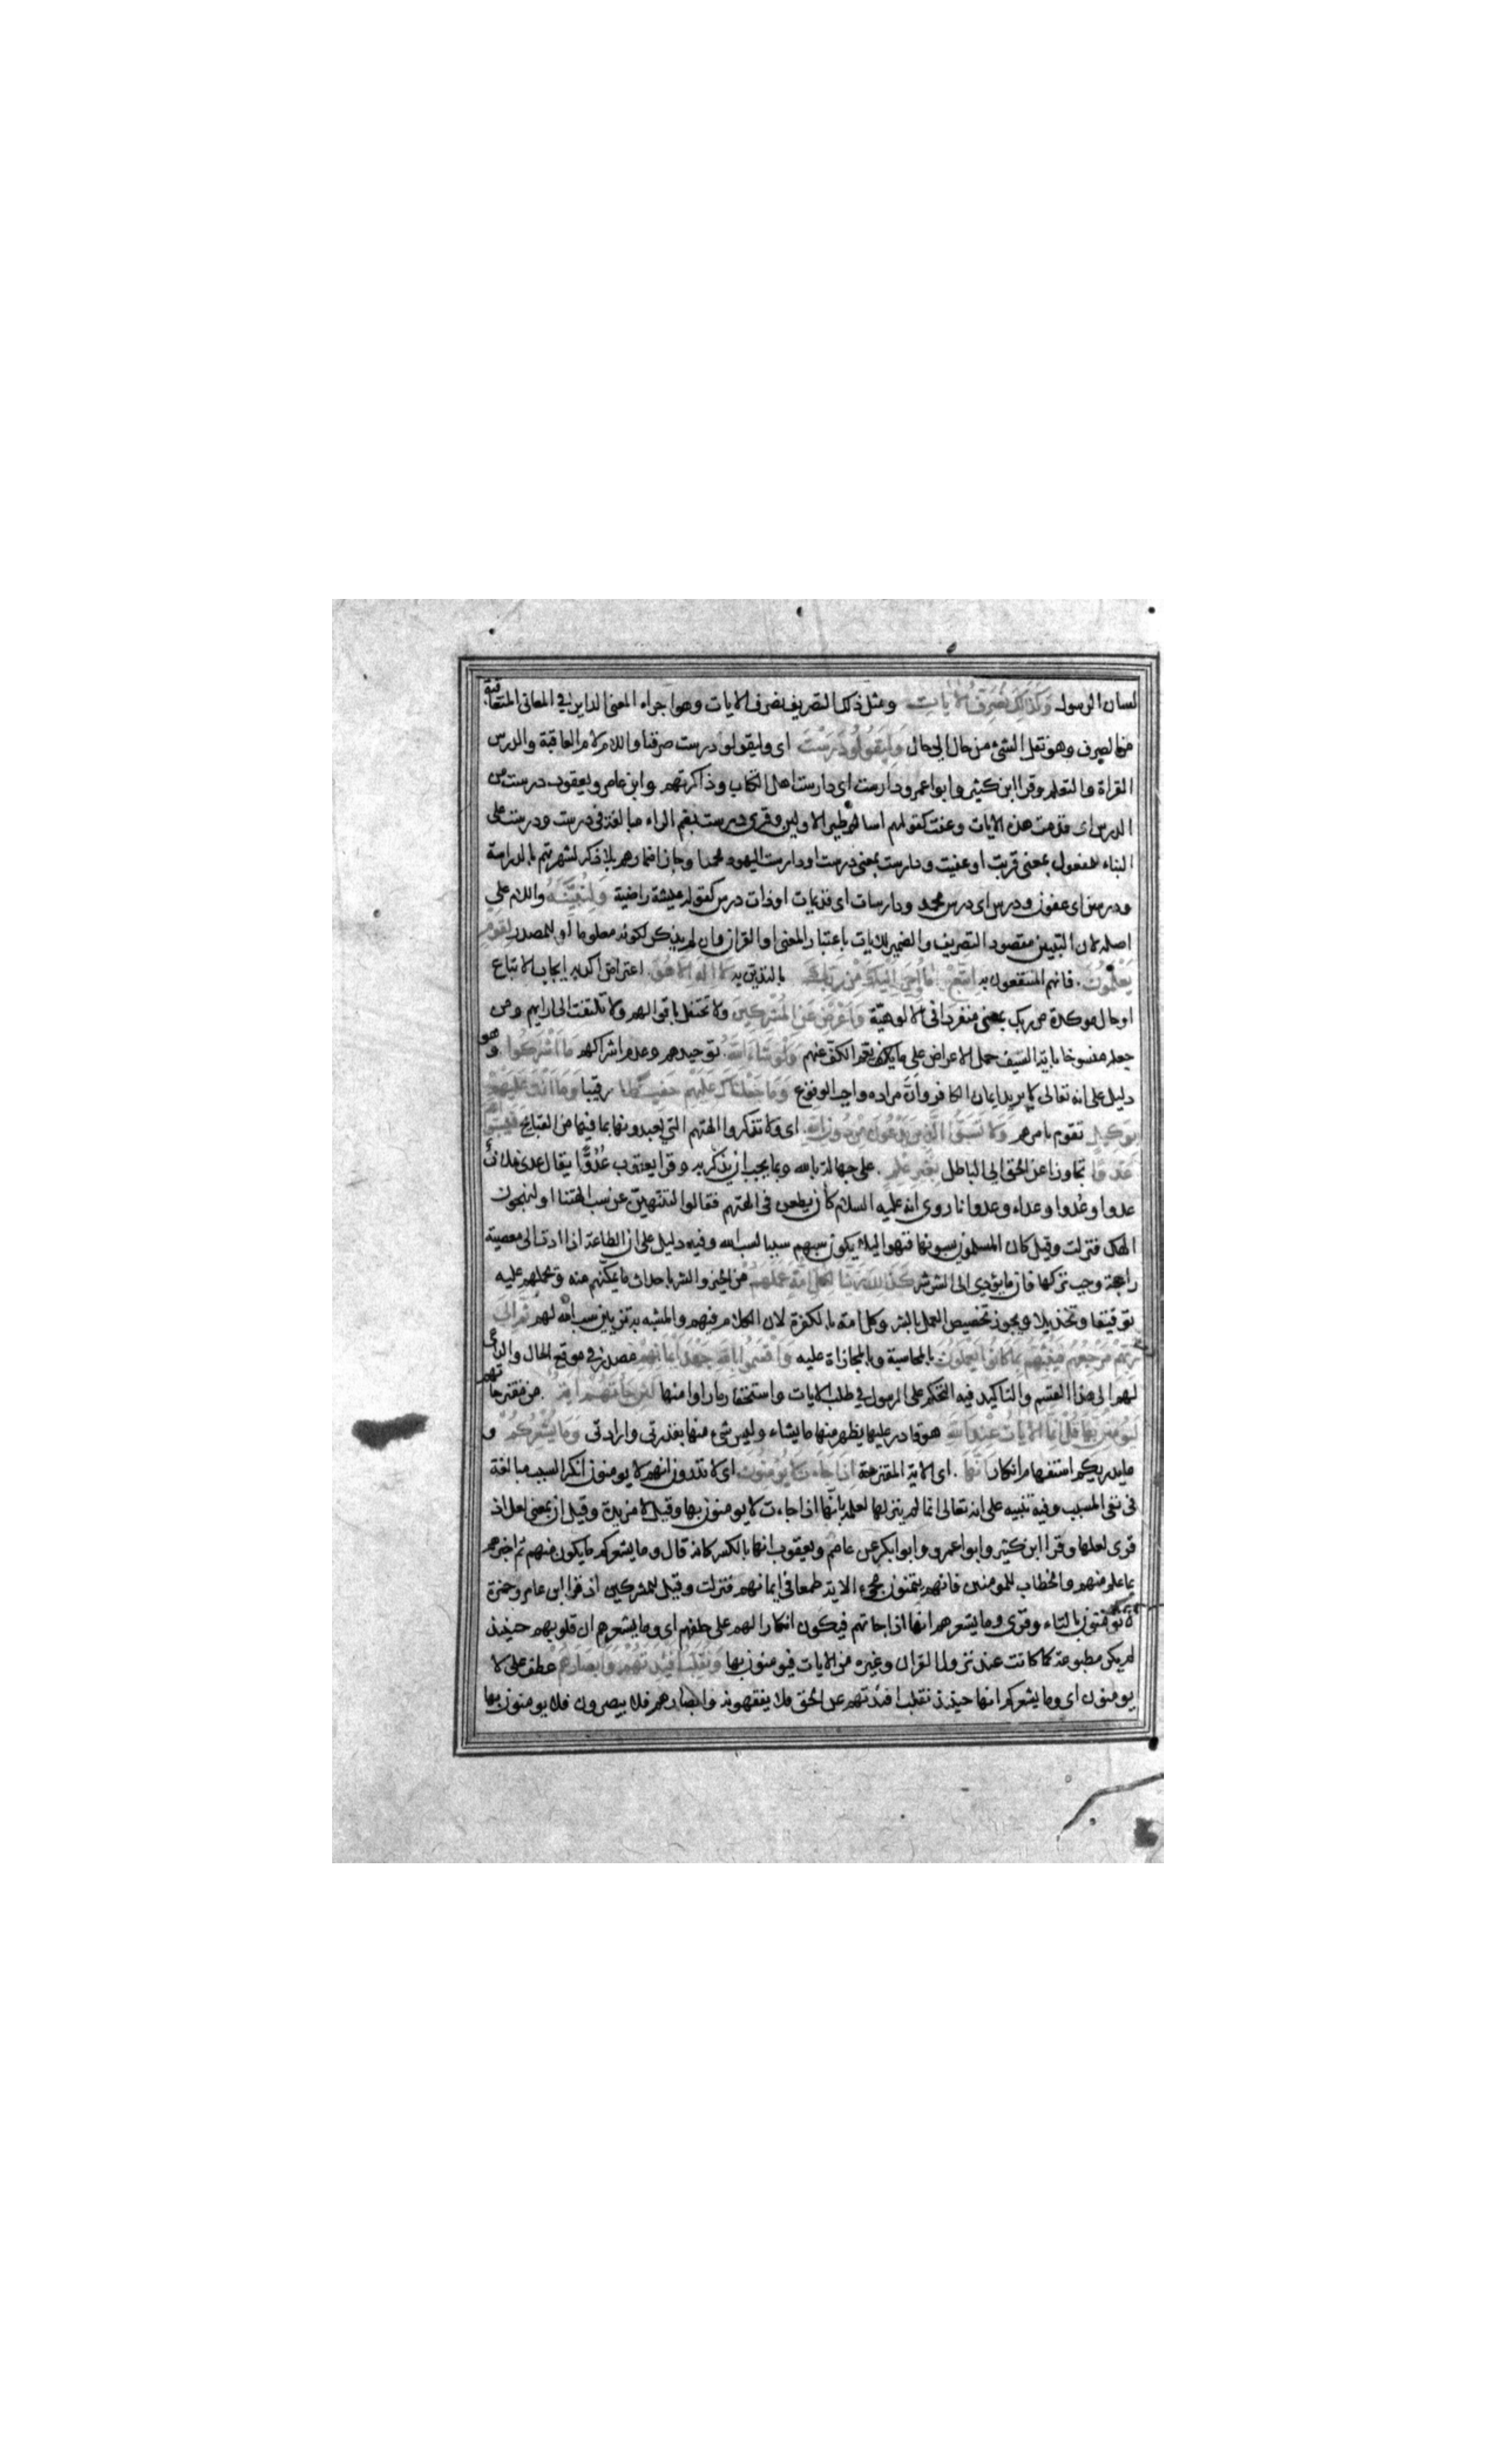 لسان الرسول وَكَذَلِكَ نُصَرِّفُ الآيَاتِ ومثل ذلك التصريف نصرف الايات وهو اجراء المعنى الداير في المعانى المتعاقبة
من الصرف وهو نقل الشئ من حال الى حال وَلِيَقُولُوا دَرَسْتَ اى وليقولوا درست صرفنا واللام لام العاقبة والدرس
القراة والتعلم وقرا ابن كثير وابو اعمرو دارست اى دارست اهل الكتاب وذاكرتهم وابن عامر ويعقوب درست من
الدرس اى قدمت هذه الايات وعفت كقولهم اساطير الاولين وقرى درست بضم الراء مبالغة فى درست ودرست على
البناء للمفعول بمعنى قريت او عفيت ودارست بمعنى درست او دارست اليهود محمدا وجاز اضمارهم بلا ذكر لشهرتهم بالدراسة
ودرسن اى عفون ودرس اى درس محمد ودارسات اى قديمات او ذات درس كقوله عيشة راضية وَلِنُبَيِّنَهُ واللام على
اصله لان التبيين مقصود التصريف والضمير للايات باعتبار المعنى او القران وان لم يذكر لكونه معلوما او للمصدر لِقَوْمٍ
يَعْلَمُونَ فانهم المنتفعون به اتَّبِعْ مَا أُوحِيَ إِلَيْكَ مِنْ رَبِّكَ بالتدين به لَا إِلَهَ إِلَّا هُوَ اعتراض اكد به ايجاب الاتباع
او حال موكدة من ربك بمعنى منفردا فى الالوهية وَأَعْرِضْ عَنِ الْمُشْرِكِينَ ولا تحتفل باقوالهم ولا تلتفت الى ارايهم ومن
جعله منسوخا باية السيف حمل الاعراض على ما يعم الكف عنهم وَلَوْ شَاءَ اللَّهُ توحيدهم وعدم اشراكهم مَا أَشْرَكُوا وهو
دليل على انه تعالى لا يريد ايمان الكافر وان مراده واجب الوقوع وَمَا جَعَلْنَاكَ عَلَيْهِمْ حَفِيظًا رقيبا وَمَا أَنْتَ عَلَيْهِمْ
بِوَكِيلٍ تقوم بامرهم وَلَا تَسُبُّوا الَّذِينَ يَدْعُونَ مِنْ دُونِ اللَّهِ اى ولا تذكروا الهتهم التي يعبدونها بما فيها من القبايح فَيَسُبُّوا اللَّهَ
عَدْوًا تجاوزا عن الحق الى الباطل بِغَيْرِ عِلْمٍ على جهالة بالله وبما يجب ان يذكر به وقرا يعقوب عُدُوًّا يقال عدى فلان
عدوا وعُدوا وعداء وعدوانا روى انه عليه السلام كان يطعن فى الهتهم فقالوا لتنتهين عن سب الهتنا او لنهجون
الهك فنزلت وقيل كان المسلمون يسبونها فنهوا ليلا يكون سبهم سببا لسب الله وفيه دليل على ان الطاعة اذا ادت الى معصية
راجحة وجب تركها فان ما يؤدي الى الشر شر كَذَلِكَ زَيَّنَّا لِكُلِّ أُمَّةٍ عَمَلَهُمْ من الخير والشر باحداث ما يمكنهم منه ويحملهم عليه
توفيقا وتخذيلا ويجوز تخصيص العمل بالشر وكل امة بالكفرة لان الكلام فيهم والمشبه به تزيين سب الله لهم ثُمَّ إِلَى
رَبِّهِمْ مَرْجِعُهُمْ فَيُنَبِّئُهُمْ بِمَا كَانُوا يَعْمَلُونَ بالمحاسبة وبالمجازاة عليه وَأَقْسَمُوا بِاللَّهِ جَهْدَ أَيْمَانِهِمْ مصدر في موقع الحال والداعى
لهم الى هذا القسم والتاكيد فيه التحكم على الرسول في طلب الايات واستحقار ما راوا منها لَئِنْ جَاءَتْهُمْ آيَةٌ من مقترحاتهم
لَيُؤْمِنُنَّ بِهَا قُلْ إِنَّمَا الْآيَاتُ عِنْدَ اللَّهِ هو قادر عليها يظهر منها ما يشاء وليس شئ منها بقدرتى وارادتى وَمَا يُشْعِرُكُمْ و
ما يدريكم استفهام انكار أَنَّهَا اى الاية المقترحة إِذَا جَاءَتْ لَا يُؤْمِنُونَ اى لا تدرون انهم لا يومنون انكر السبب مبالغة
فى نفى المسبب وفيه تنبيه على انه تعالى انما لم ينزلها لعلمه بانها اذا جاءت لا يومنون بها وقيل لا مزيدة وقيل ان بمعنى لعل اذ
قرى لعلها وقرا ابن كثير وابو اعمرو وابو ابكر عن عاصم ويعقوب انها بالكسر كانه قال وما يشعركم ما يكون منهم ثم اخبرهم
بما علم منهم والخطاب للمومنين فانهم يتمنون مجىء الاية طمعا فى ايمانهم فنزلت وقيل للمشركين اذ قرا ابن عامر وحمزة
لا تومنون بالتاء وقرى وما يشعرهم انها اذا جاتهم فيكون انكارا لهم على حلفهم اى وما يشعرهم ان قلوبهم حينئذ
لم يكن مطبوعة كما كانت عند نزول القران وغيره من الايات فيومنون بها وَنُقَلِّبُ أَفْئِدَتَهُمْ وَأَبْصَارَهُمْ عطف على لا
يومنون اى وما يشعركم انها حينئذ نقلب افئدتهم عن الحق فلا يفقهونه وابصارهم فلا يبصرون فلا يومنون بها